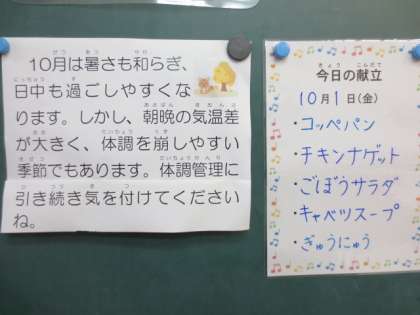 10月は暑さも和らぎ、
日中も過ごしやすくな
ります。しかし、朝晩の気温差
が大きく、体調を崩しやすい
季節でもあります。体調管理に
引き続き気を付けてください
ね。
今日の献立
10月1日(金)
・コッペパン
・チキンナゲット
・ごぼうサラダ
・キャベツスープ
・ぎゅうにゅう